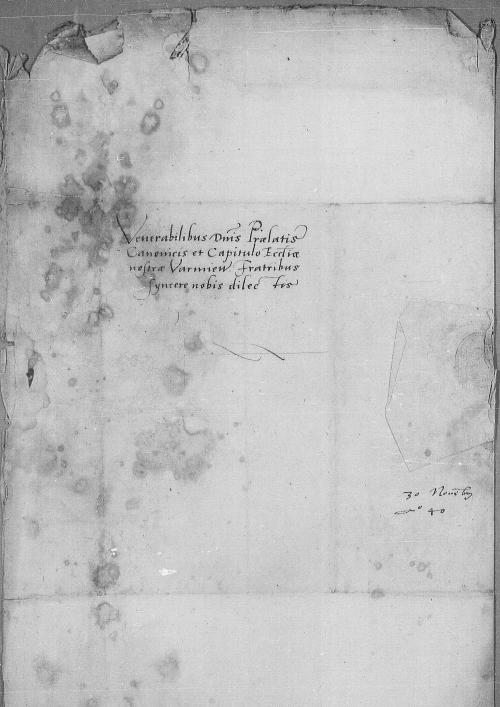 Venerabilibus Dnis Prælatis
Canonicis et Capitulo Eccliæ
nostræ Varmien Fratribus
syncere nobis dilec tis
30 Nouēb
40